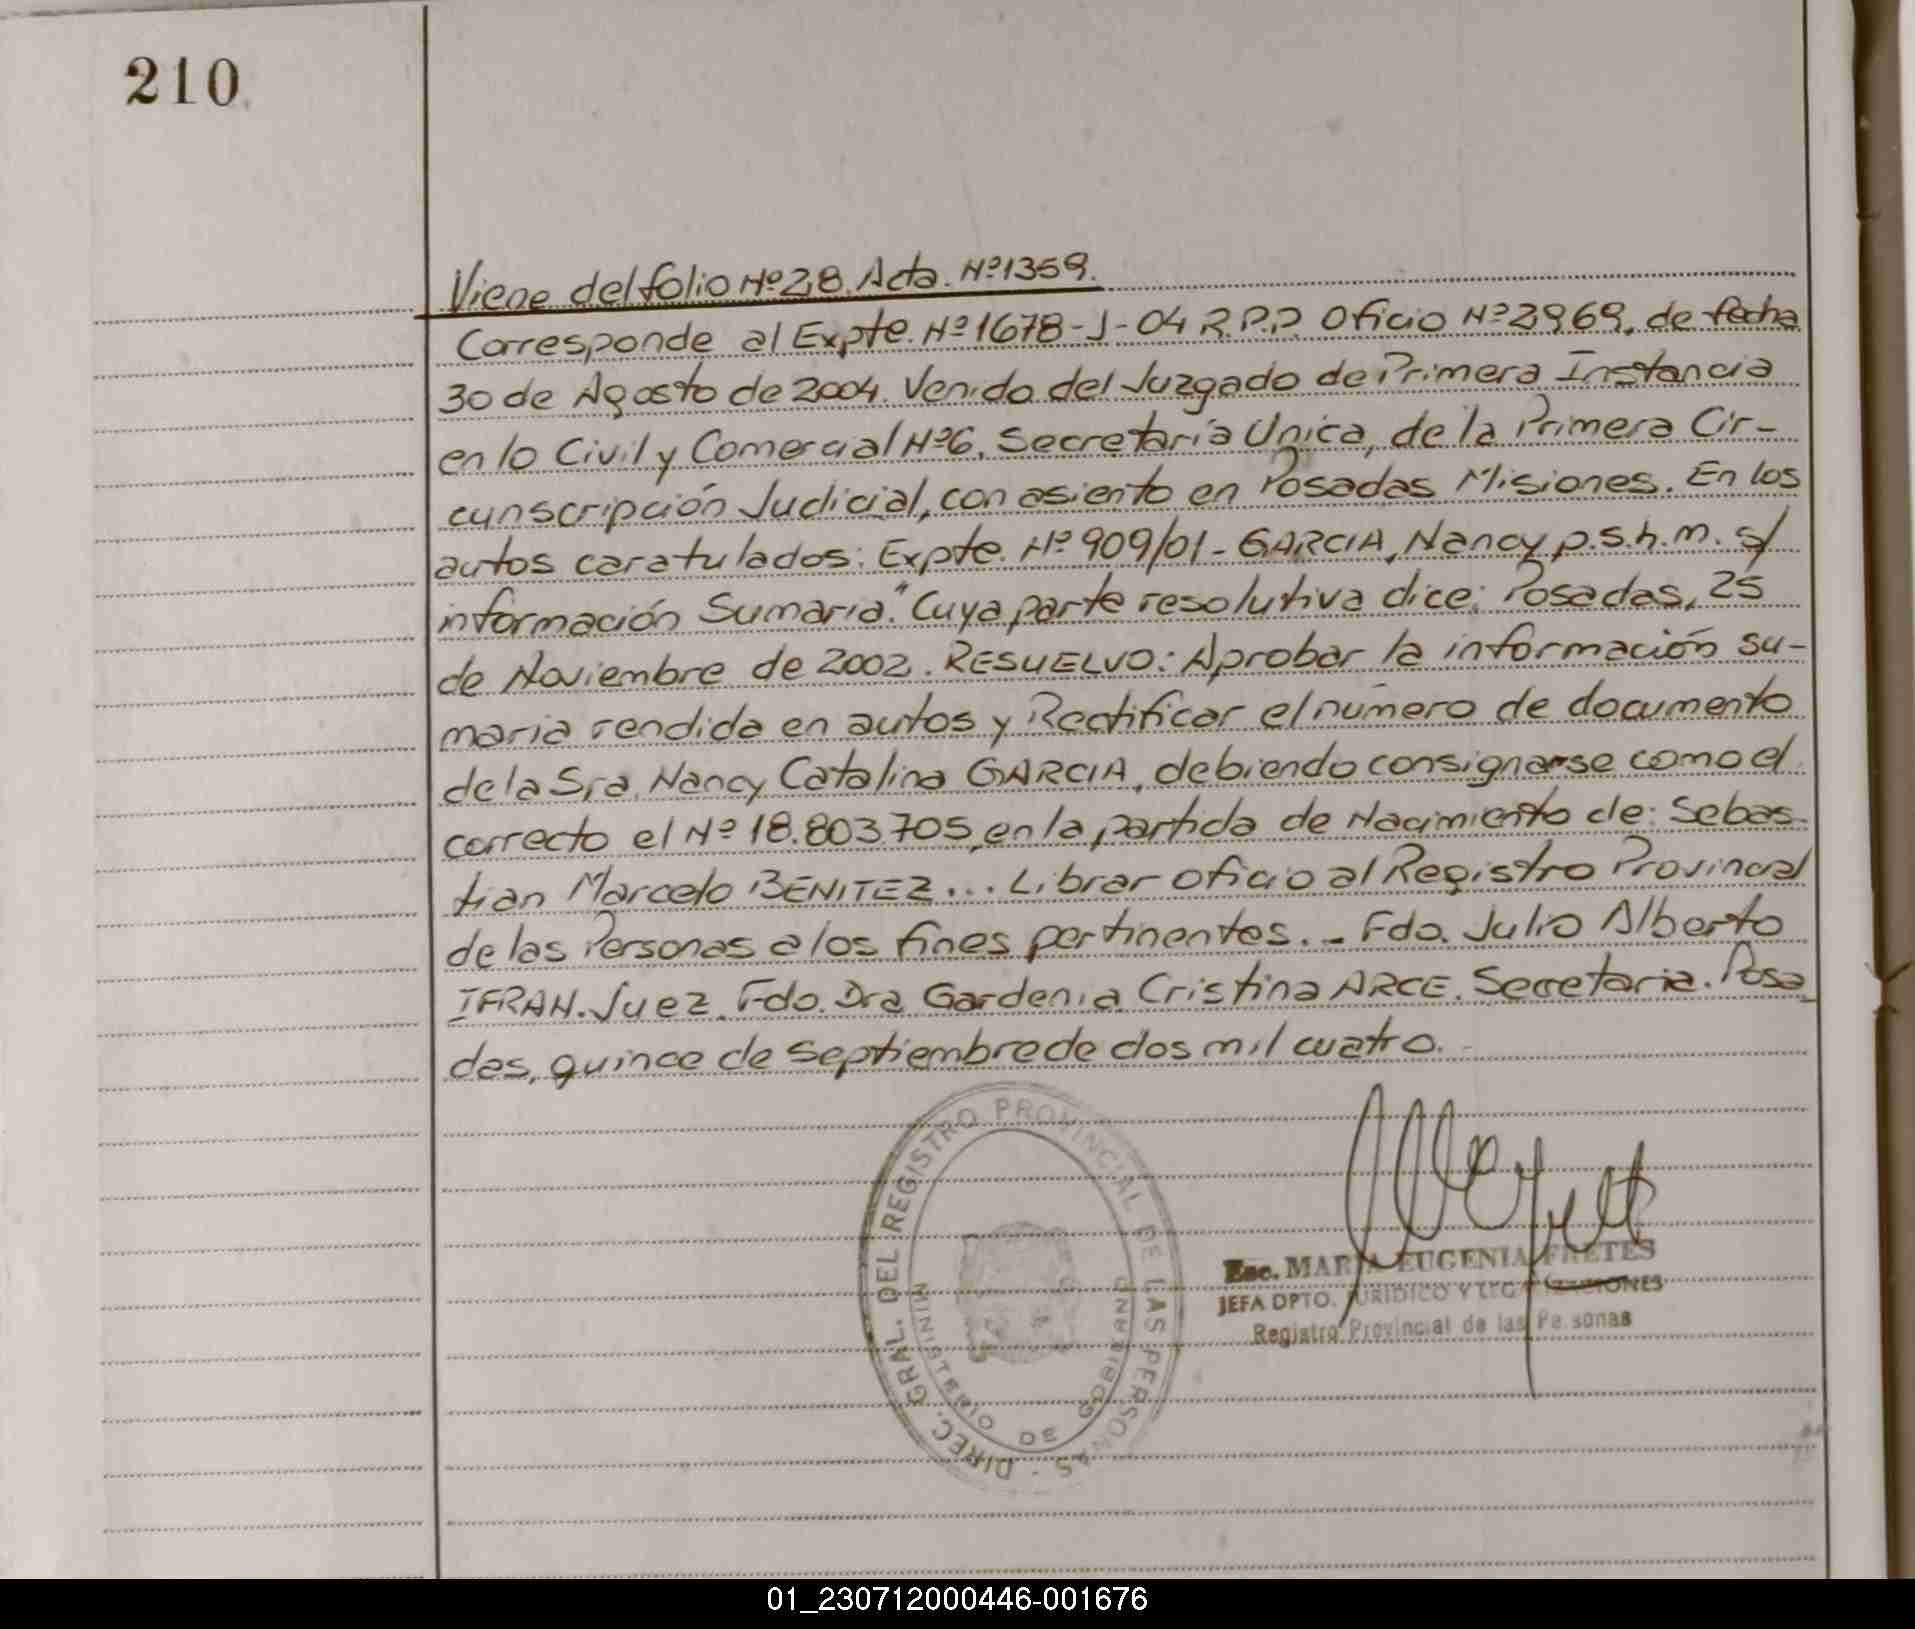 210
Viene del folio Nº 28. Acta. Nº 1359.
Corresponde al Expte. Nº 1678-J-04 R.P.P. Oficio Nº 2969, de fecha
30 de Agosto de 2004. Venido del Juzgado de Primera Instancia
en lo Civil y Comercial Nº 6, Secretaría Unica, de la Primera Cir-
cunscripción Judicial, con asiento en Posadas Misiones. En los
autos caratulados: Expte. Nº 909/01 - GARCIA, Nancy p.s.h.m. s/
información Sumaria." Cuya parte resolutiva dice: Posadas, 25
de Noviembre de 2002. RESUELVO: Aprobar la información su-
maria rendida en autos y Rectificar el número de documento
de la Sra. Nancy Catalina GARCIA, debiendo consignarse como el
correcto el Nº 18.803.705, en la partida de Nacimiento de: Sebas-
tian Marcelo BENITEZ... Librar oficio al Registro Provincial
de las Personas a los fines pertinentes. - Fdo. Julio Alberto
IFRAN. Juez. Fdo. Dra Gardenia Cristina ARCE. Secretaria. Posa
das, quince de septiembre de dos mil cuatro.
DIREC. GRAL. DEL REGISTRO PROVINCIAL DE LAS PERSONAS -
MINISTERIO DE GOBIERNO
Esc. MARIA EUGENIA FRETES
JEFA DPTO. JURIDICO Y LEGALIZACIONES
Registro Provincial de las Personas
01_230712000446-001676